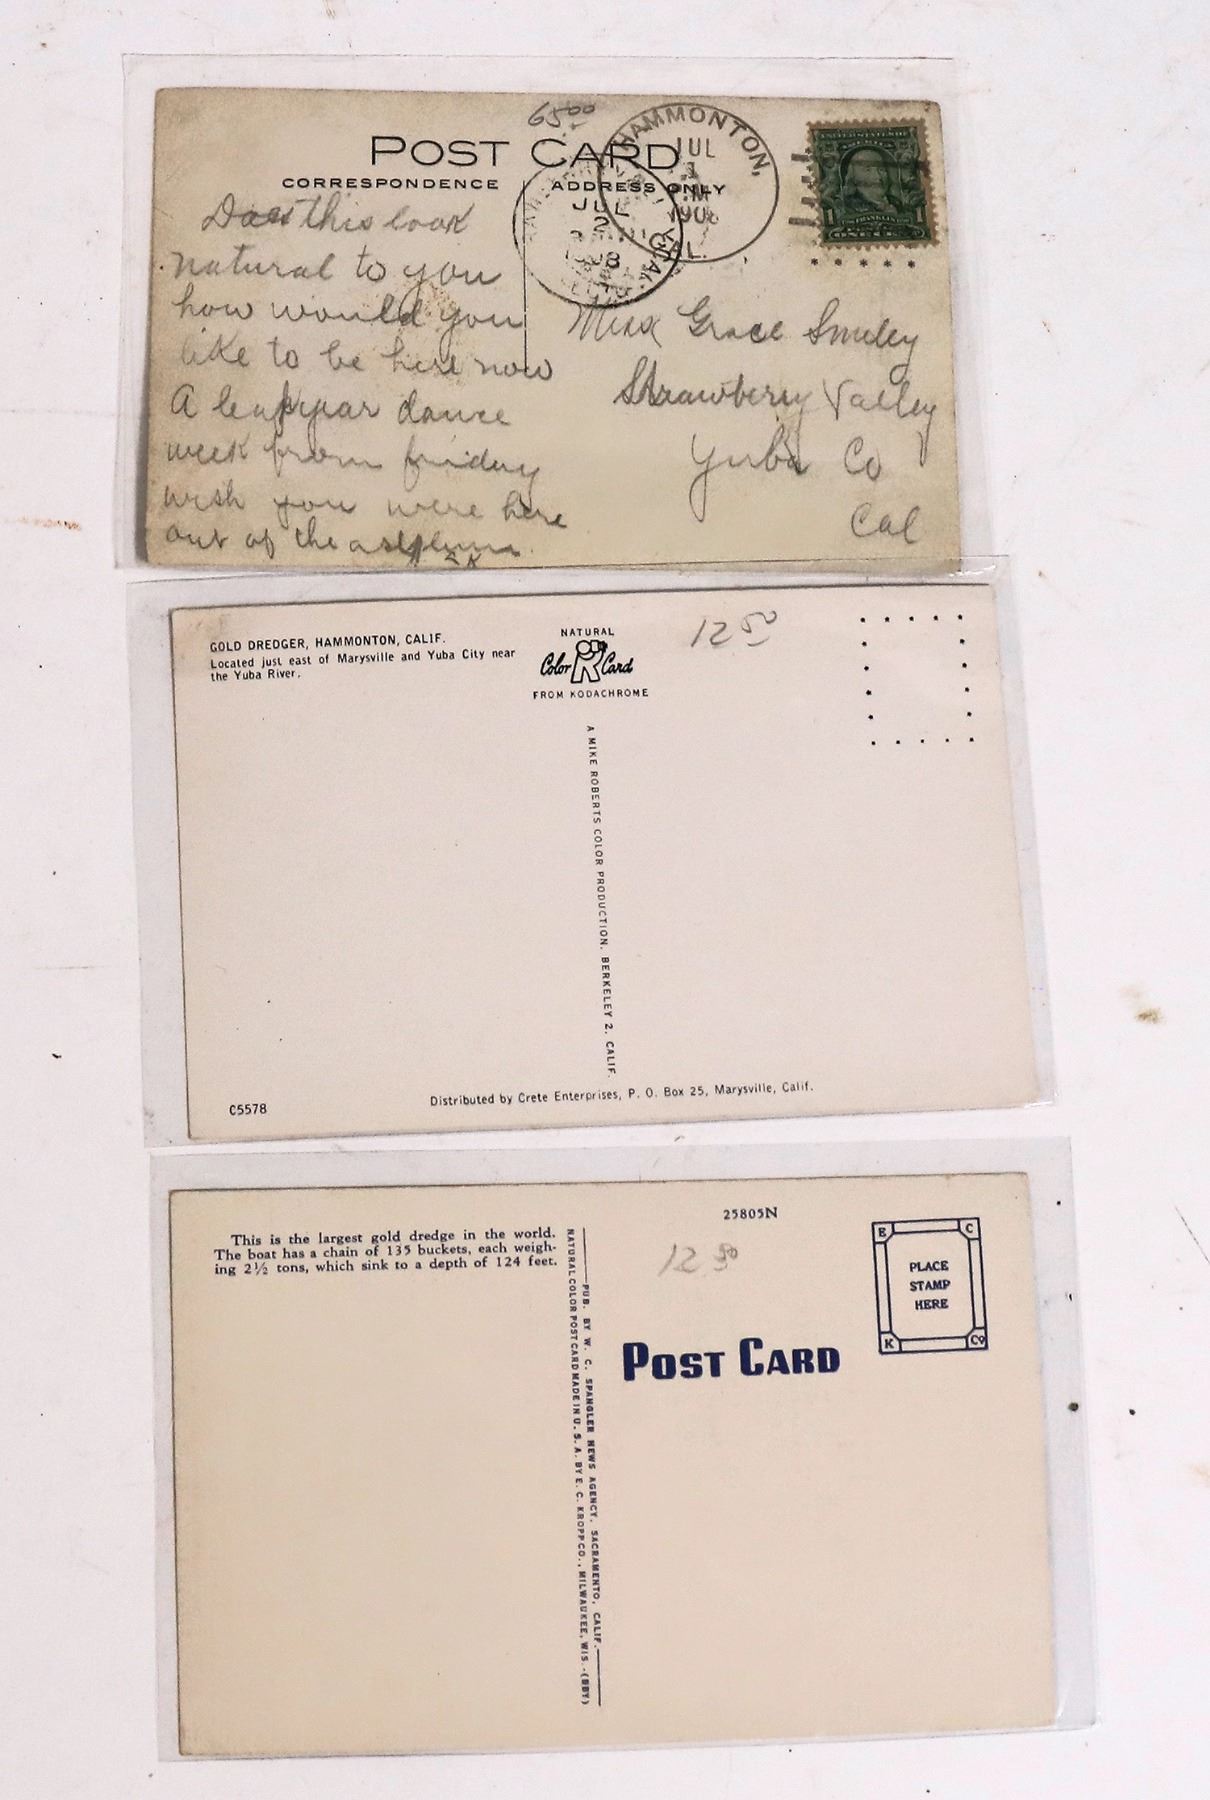 65 00
POST CARD
CORRESPONDENCE ADDRESS ONLY
HAMMONTON,
JUL
1908
CAL.
JUL
2
Does this look
natural to you
how would you
like to be here now
A leap year dance
week from friday
wish you were here
out of the
Miss Grace Smiley
Strawberry Valley
Yuba Co
Cal
UNITED STATES OF
AMERICA
1 FRANKLIN 1
ONE
GOLD DREDGER, HAMMONTON, CALIF.
Located just east of Marysville and Yuba City near
the Yuba River.
NATURAL
Color Card
FROM KODACHROME
12 50
A MIKE ROBERTS COLOR PRODUCTION, BERKELEY 2, CALIF.
C5578
Distributed by Crete Enterprises, P. O. Box 25, Marysville, Calif.
This is the largest gold dredge in the world.
The boat has a chain of 135 buckets, each weigh-
ing 2½ tons, which sink to a depth of 124 feet.
25805N
12 50
E C
PLACE
STAMP
HERE
K Co
POST CARD
PUB. BY W. C. SPANGLER NEWS AGENCY, SACRAMENTO, CALIF.
NATURAL COLOR POST CARD MADE IN U. S. A. BY E. C. KROPP CO., MILWAUKEE, WIS.-(BBY)